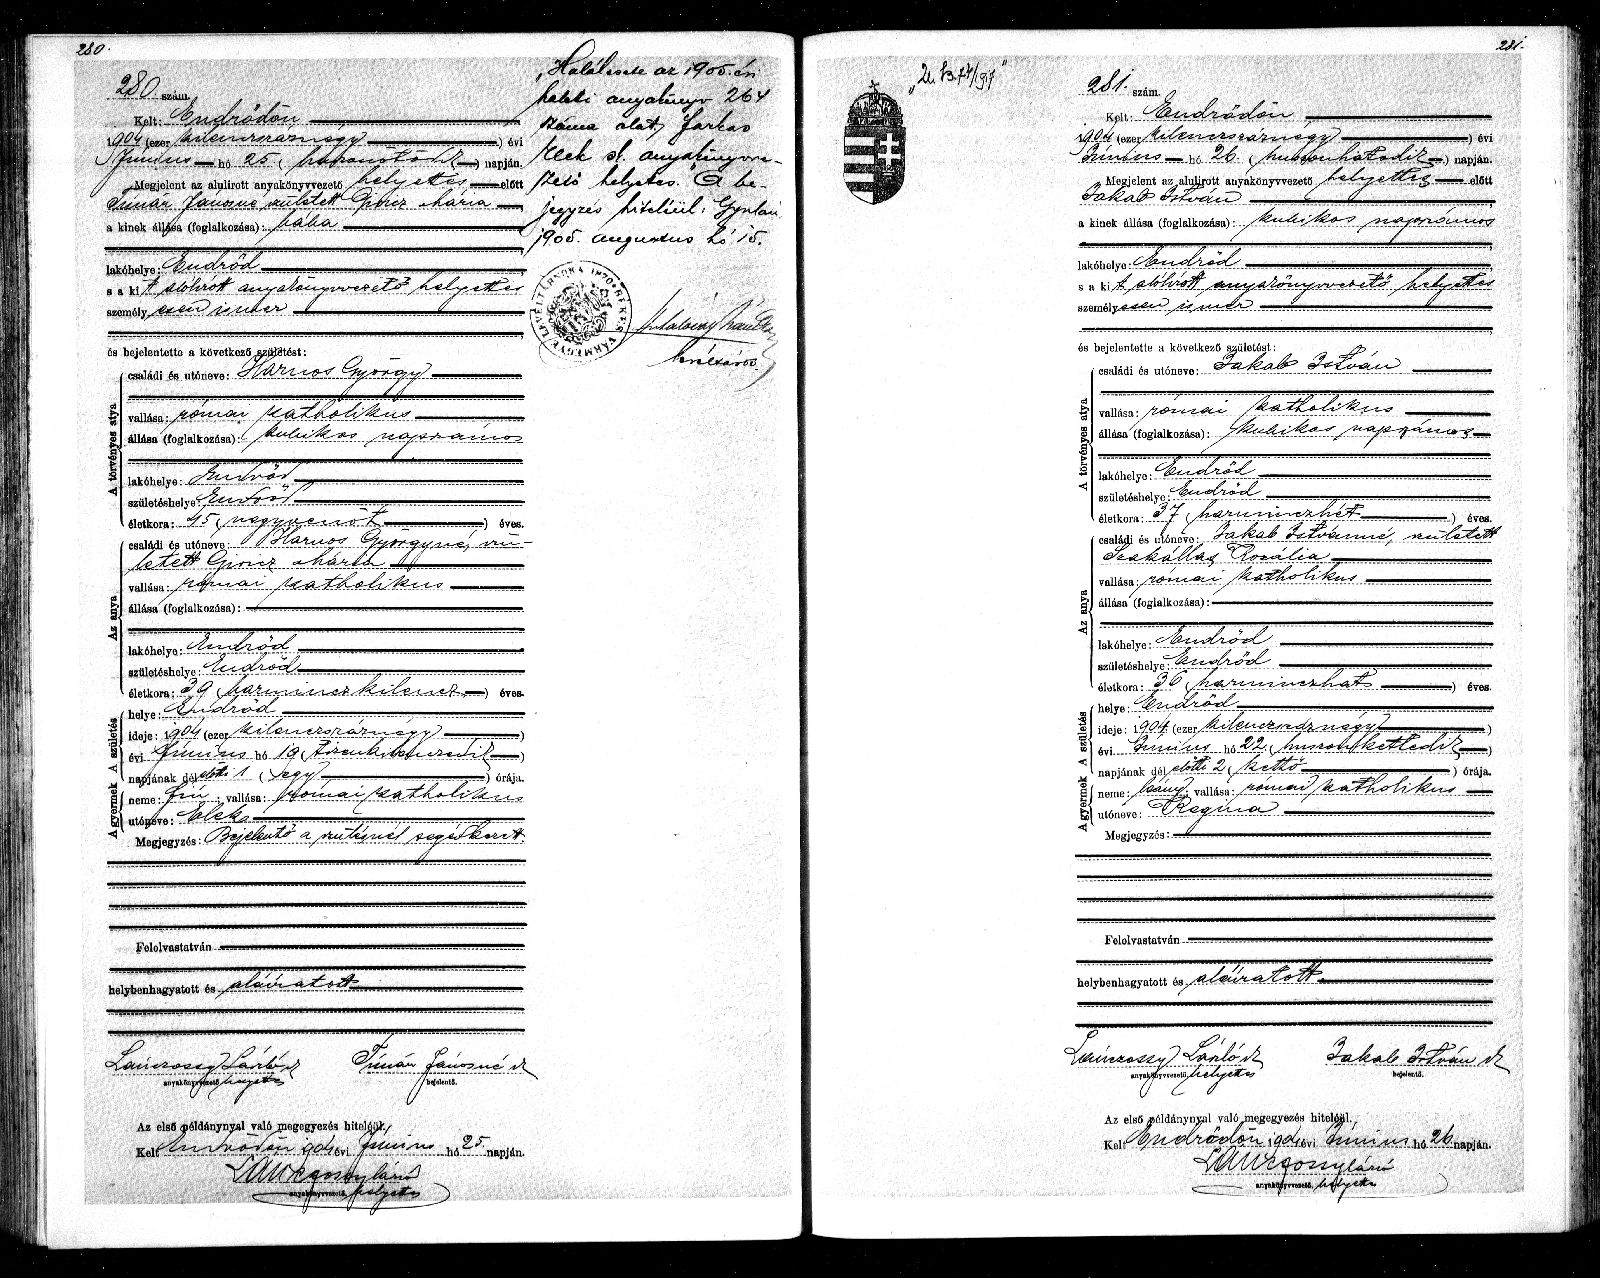 280.
280 szám.
Kelt: Endrődön
1904 (ezer kilenczszáznégy) évi
Június hó 25 (huszonötödik) napján.
Megjelent az alulirott anyakönyvvezető helyettes előtt
Tímár Jánosné született Gonz Mária
a kinek állása (foglalkozása): bába
lakóhelye: Endrőd
s a kit alólirott anyakönyvvezető helyettes
személyesen ismer
és bejelentette a következő születést:
A törvényes atya
családi és utóneve: Harnos György
vallása: római katholikus
állása (foglalkozása): kubikos napszámos
lakóhelye: Endrőd
születéshelye: Endrőd
életkora: 45 (negyvenöt) éves.
Az anya
családi és utóneve: Harnos Györgyné, szü-
letett Gonz Mária
vallása: római katholikus
állása (foglalkozása):
lakóhelye: Endrőd
születéshelye: Endrőd
életkora: 39 (harminczkilencz) éves.
A születés
helye: Endrőd
ideje: 1904 (ezer kilenczszáznégy)
évi Június hó 19 (tizenkilenczedik)
napjának délelőtti 1 (egy) órája.
A gyermek
neme: fiú; vallása: római katholikus
utóneve: Elek
Megjegyzés: Bejelentő a szülésnél segédkezett.
Felolvastatván
helybenhagyatott és aláiratott
László s.k. Tímár Jánosné s.k.
anyakönyvvezető helyettes bejelentő.
Az első példánynyal való megegyezés hiteléül.
Kelt Endrődön 1904 évi Június hó 25. napján.
László
anyakönyvvezető, helyettes
„Halálesete az 1905. évi
haláli anyakönyv 264
száma alatt, Farkas
Elek s.k. anyakönyvve-
zető helyettes." A be-
jegyzés hiteléül: Gyulán
1905. augusztus hó 15.
BÉKÉS VÁRMEGYE LEVÉLTÁRNOKA 1870
levéltáros.
281.
281. szám.
Kelt: Endrődön
1904 (ezer kilenczszáznégy) évi
Június hó 26. (huszonhatodik) napján.
Megjelent az alulirott anyakönyvvezető helyettes előtt
Jakab István
a kinek állása (foglalkozása): kubikos napszámos
lakóhelye: Endrőd
s a kit alólirott anyakönyvvezető helyettes
személyesen ismer
és bejelentette a következő születést:
A törvényes atya
családi és utóneve: Jakab István
vallása: római katholikus
állása (foglalkozása): kubikos napszámos
lakóhelye: Endrőd
születéshelye: Endrőd
életkora: 37 (harminczhét) éves.
Az anya
családi és utóneve: Jakab Istvánné, született
Szakállas Rozália
vallása: római katholikus
állása (foglalkozása):
lakóhelye: Endrőd
születéshelye: Endrőd
életkora: 36 (harminczhat) éves.
A születés
helye: Endrőd
ideje: 1904 (ezer kilenczszáznégy)
évi Június hó 22 (huszonkettedik)
napjának délelőtti 2 (kettő) órája.
A gyermek
neme: leány; vallása: római katholikus
utóneve: Regina
Megjegyzés:
Felolvastatván
helybenhagyatott és aláiratott
László s.k. Jakab István s.k.
anyakönyvvezető helyettes bejelentő.
Az első példánynyal való megegyezés hiteléül.
Kelt Endrődön 1904 évi Június hó 26. napján.
László
anyakönyvvezető, helyettes